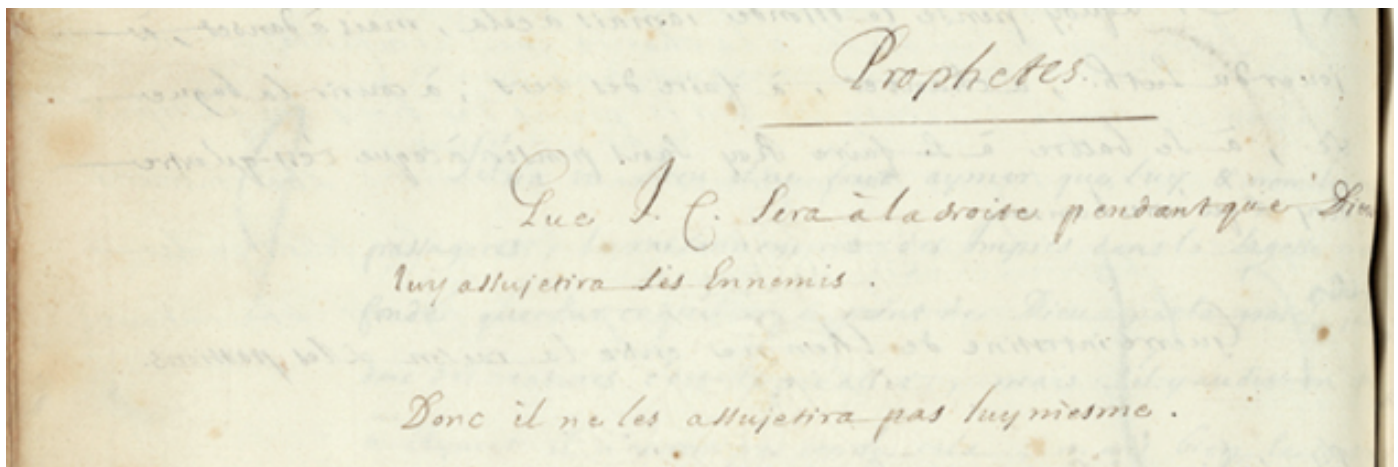 Prophetes.
Que J. C. sera à la droite pendant que Dieu
luy assujetira ses Ennemis.
Donc il ne les assujetira pas luy mesme.